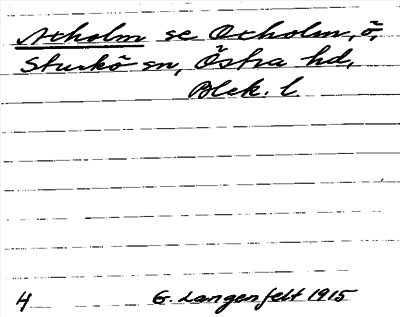 Axholm se Oxholm, ö,
Sturkö sn, Östra hd,
Blek. l
4 G. Langenfelt 1915